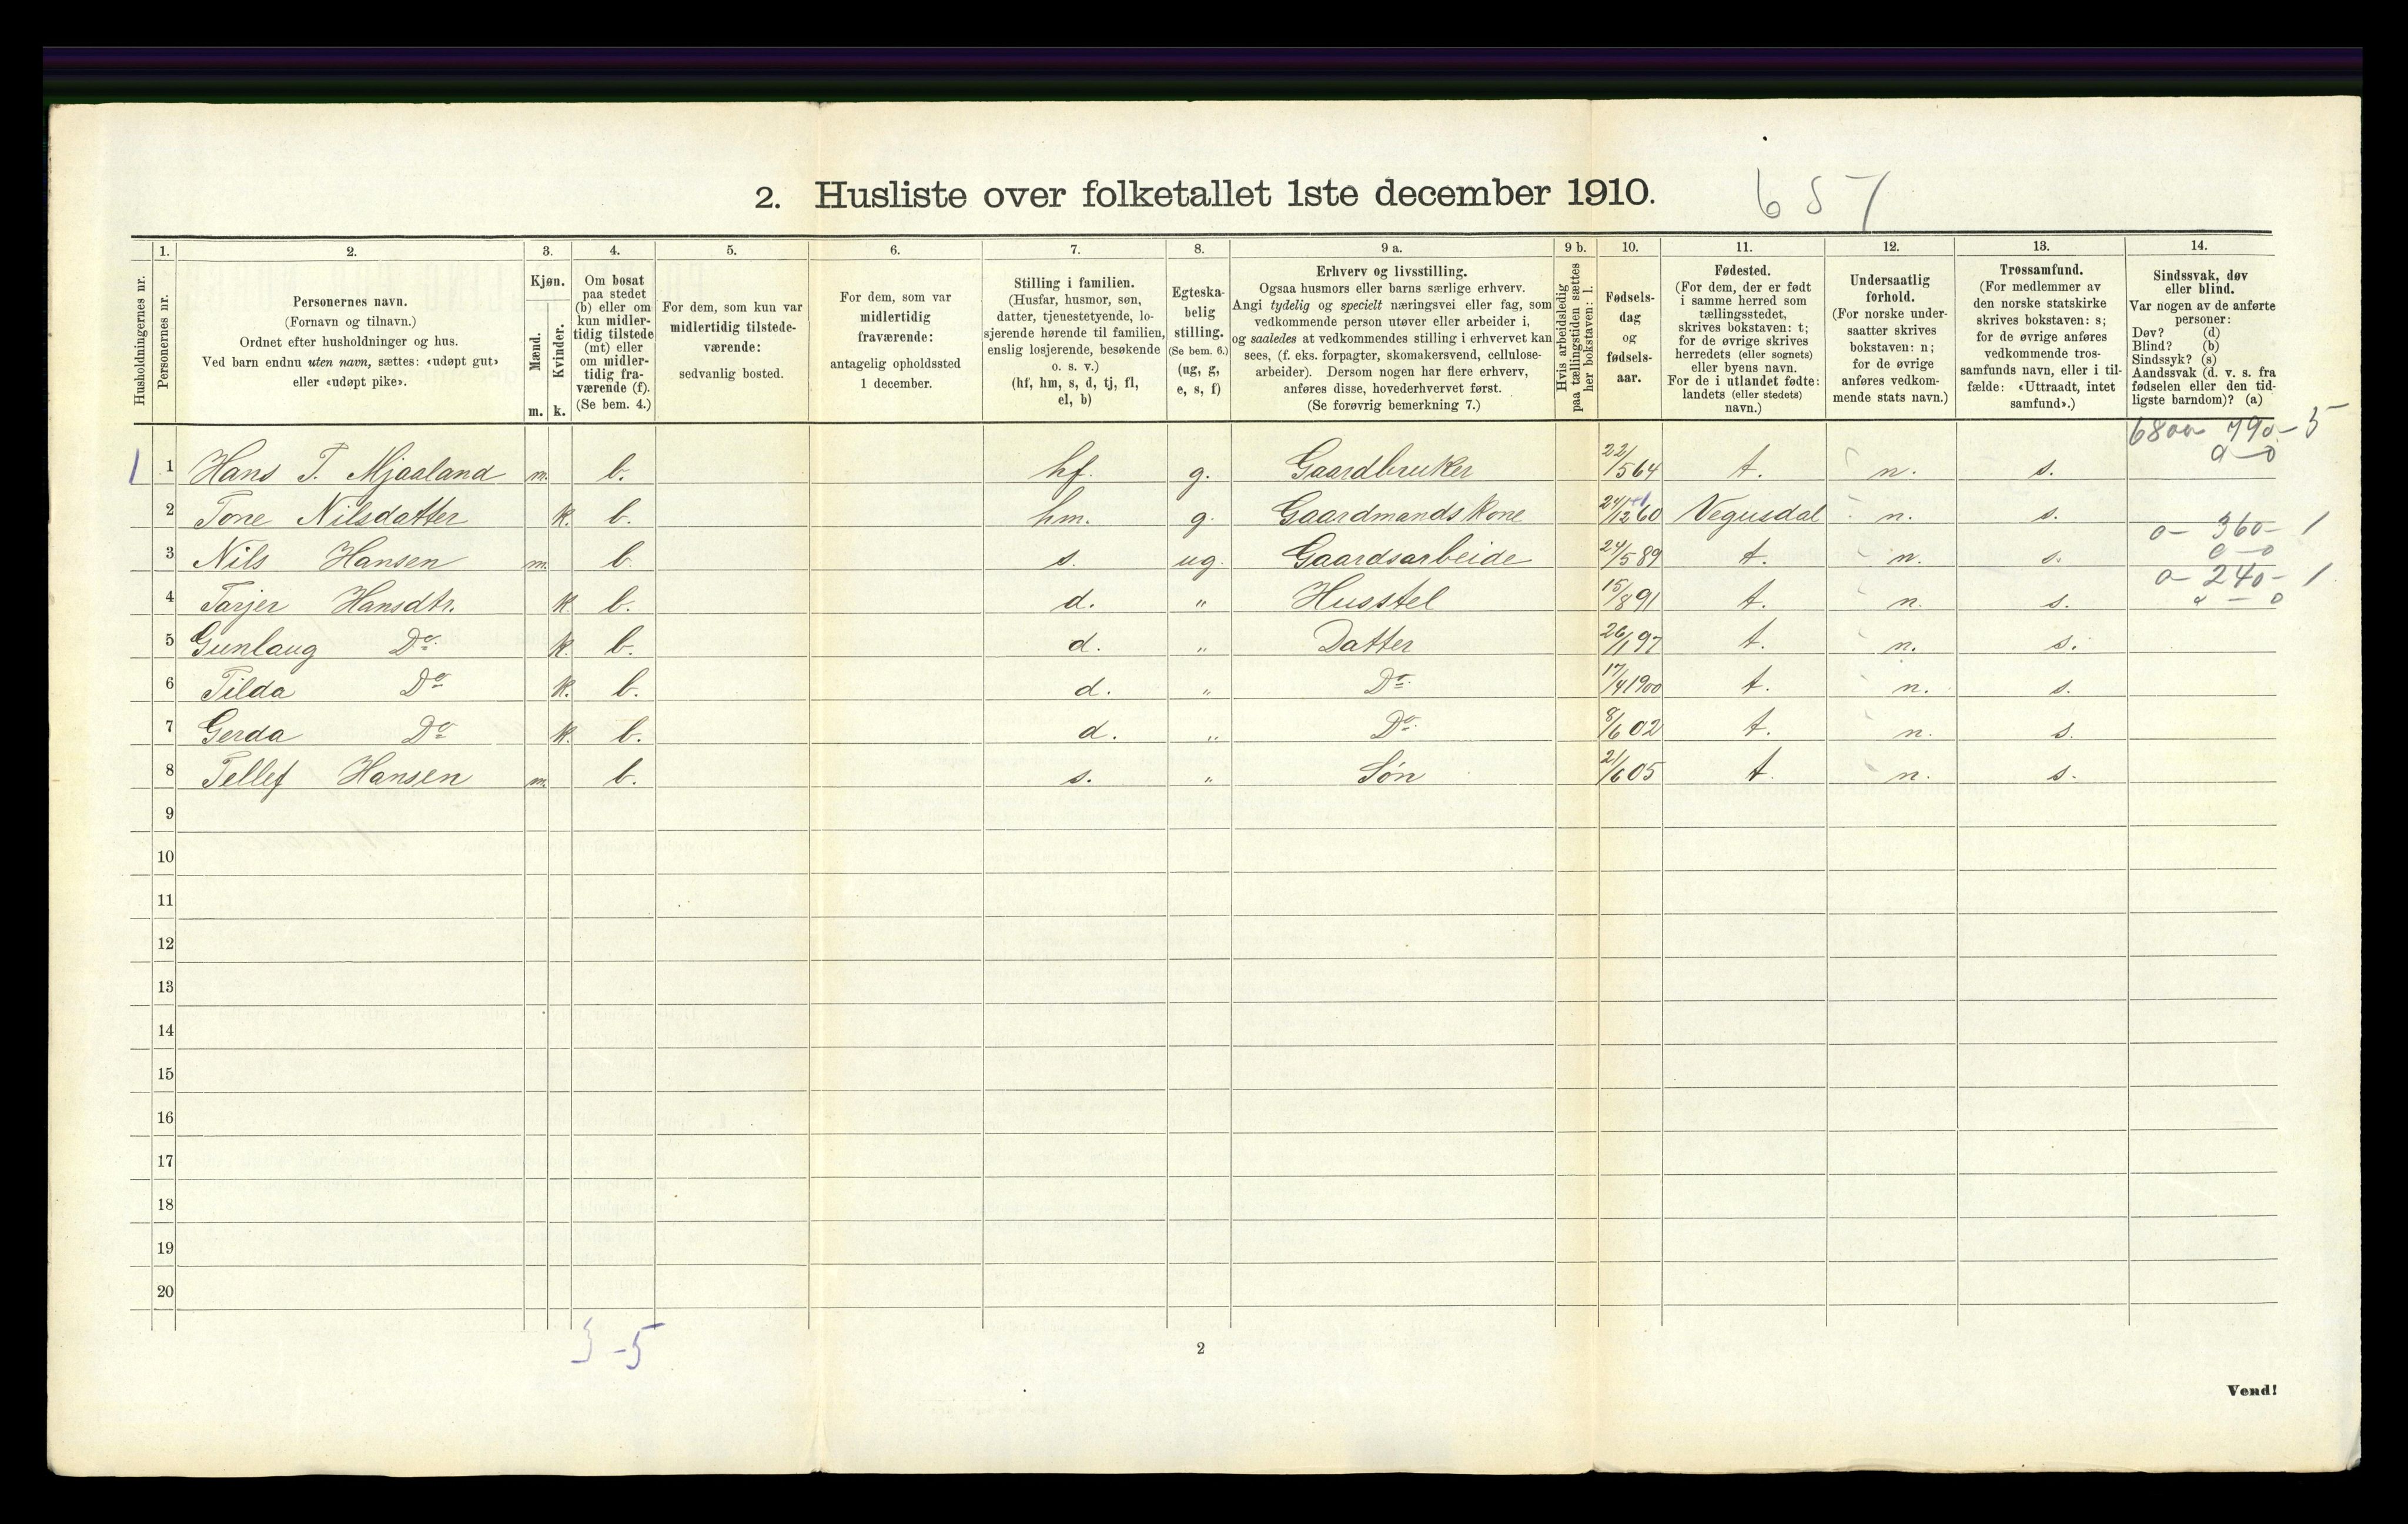 2. Husliste over folketallet 1ste december 1910.
657
1. 2. 3. 4. 5. 6. 7. 8. 9 a. 9 b. 10. 11. 12. 13. 14.
Husholdningernes nr.
Personernes nr.
Personernes navn.
(Fornavn og tilnavn.)
Ordnet efter husholdninger og hus.
Ved barn endnu uten navn, sættes: «udøpt gut»
eller «udøpt pike».
Kjøn.
Mænd.
Kvinder.
m. k.
Om bosat
paa stedet
(b) eller om
kun midler-
tidig tilstede
(mt) eller
om midler-
tidig fra-
værende (f).
(Se bem. 4.)
For dem, som kun var
midlertidig tilstede-
værende:
sedvanlig bosted.
For dem, som var
midlertidig
fraværende:
antagelig opholdssted
1 december.
Stilling i familien.
(Husfar, husmor, søn,
datter, tjenestetyende, lo-
sjerende hørende til familien,
enslig losjerende, besøkende
o. s. v.)
(hf, hm, s, d, tj, fl,
el, b)
Egteska-
belig
stilling.
(Se bem. 6.)
(ug, g,
e, s, f)
Erhverv og livsstilling.
Ogsaa husmors eller barns særlige erhverv.
Angi tydelig og specielt næringsvei eller fag, som
vedkommende person utøver eller arbeider i,
og saaledes at vedkommendes stilling i erhvervet kan
sees, (f. eks. forpagter, skomakersvend, cellulose-
arbeider). Dersom nogen har flere erhverv,
anføres disse, hovederhvervet først.
(Se forøvrig bemerkning 7.)
Hvis arbeidsledig
paa tællingstiden sættes
her bokstaven: l.
Fødsels-
dag
og
fødsels-
aar.
Fødested.
(For dem, der er født
i samme herred som
tællingsstedet,
skrives bokstaven: t;
for de øvrige skrives
herredets (eller sognets)
eller byens navn.
For de i utlandet fødte:
landets (eller stedets)
navn.)
Undersaatlig
forhold.
(For norske under-
saatter skrives
bokstaven: n;
for de øvrige
anføres vedkom-
mende stats navn.)
Trossamfund.
(For medlemmer av
den norske statskirke
skrives bokstaven: s;
for de øvrige anføres
vedkommende tros-
samfunds navn, eller i til-
fælde: «Uttraadt, intet
samfund».)
Sindssvak, døv
eller blind.
Var nogen av de anførte
personer:
Døv? (d)
Blind? (b)
Sindssyk? (s)
Aandssvak (d. v. s. fra
fødselen eller den tid-
ligste barndom)? (a)
1 1 Hans T. Mjaaland m. b. hf. g. Gaardbruker 22/5 64 t. n. s.
2 Tone Nilsdatter k. b. hm. g. Gaardmands kone 24/12 60 Vegusdal n. s.
3 Nils Hansen m. b. s. ug. Gaardsarbeide 24/5 89 t. n. s. 0- 360- 1
4 Tarjer Hansdtr. k. b. d. " Husstel 15/8 91 t. n. s. 0- 240- 1
5 Gunlaug Do. k. b. d. " Datter 26/1 97 t. n. s.
6 Tilda Do k. b. d. " Do. 17/4 1900 t. n. s.
7 Gerda Do k. b. d. " Do. 8/6 02 t. n. s.
8 Tellef Hansen m. b. s. " Søn 21/6 05 t. n. s.
9
10
11
12
13
14
15
16
17
18
19
20
3 -5
2
Vend!